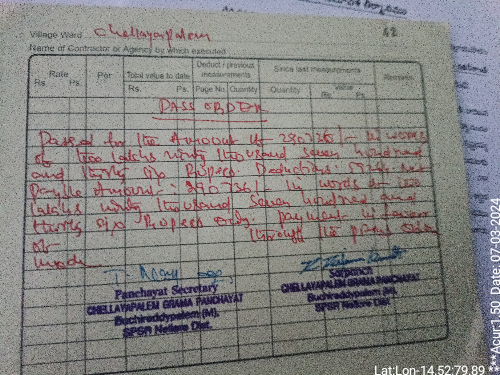 Village Ward Chellayapalem
42
Name of Contractor or Agency by which executed
Rate Per Total value to date Deduct previous measurements Since last measurements Remarks
Rs. Ps. Rs. Ps. Page No. Quantity Quantity Value Rs. Ps.
PASS ORDER
Passed for the Amount of 290736/- in words
of two lakhs ninty thousand seven hundred
and thirty six Rupees Deductions
Payble Amount: 290736/- in words of two
lakhs ninty thousand seven hundred and
thirty six Rupees only. payment in favour
of through the
made
Panchayat Secretary
CHELLAYAPALEM GRAMA PANCHAYAT
Buchireddypalem (M).
SPSR Nellore Dist.
Sarpanch
CHELLAYAPALEM GRAMA PANCHAYAT
Buchireddypalem (M),
SPSR Nellore Dist.
Lat:Lon-14.52:79.89
***Acur:1.50 Date: 07-03-2024